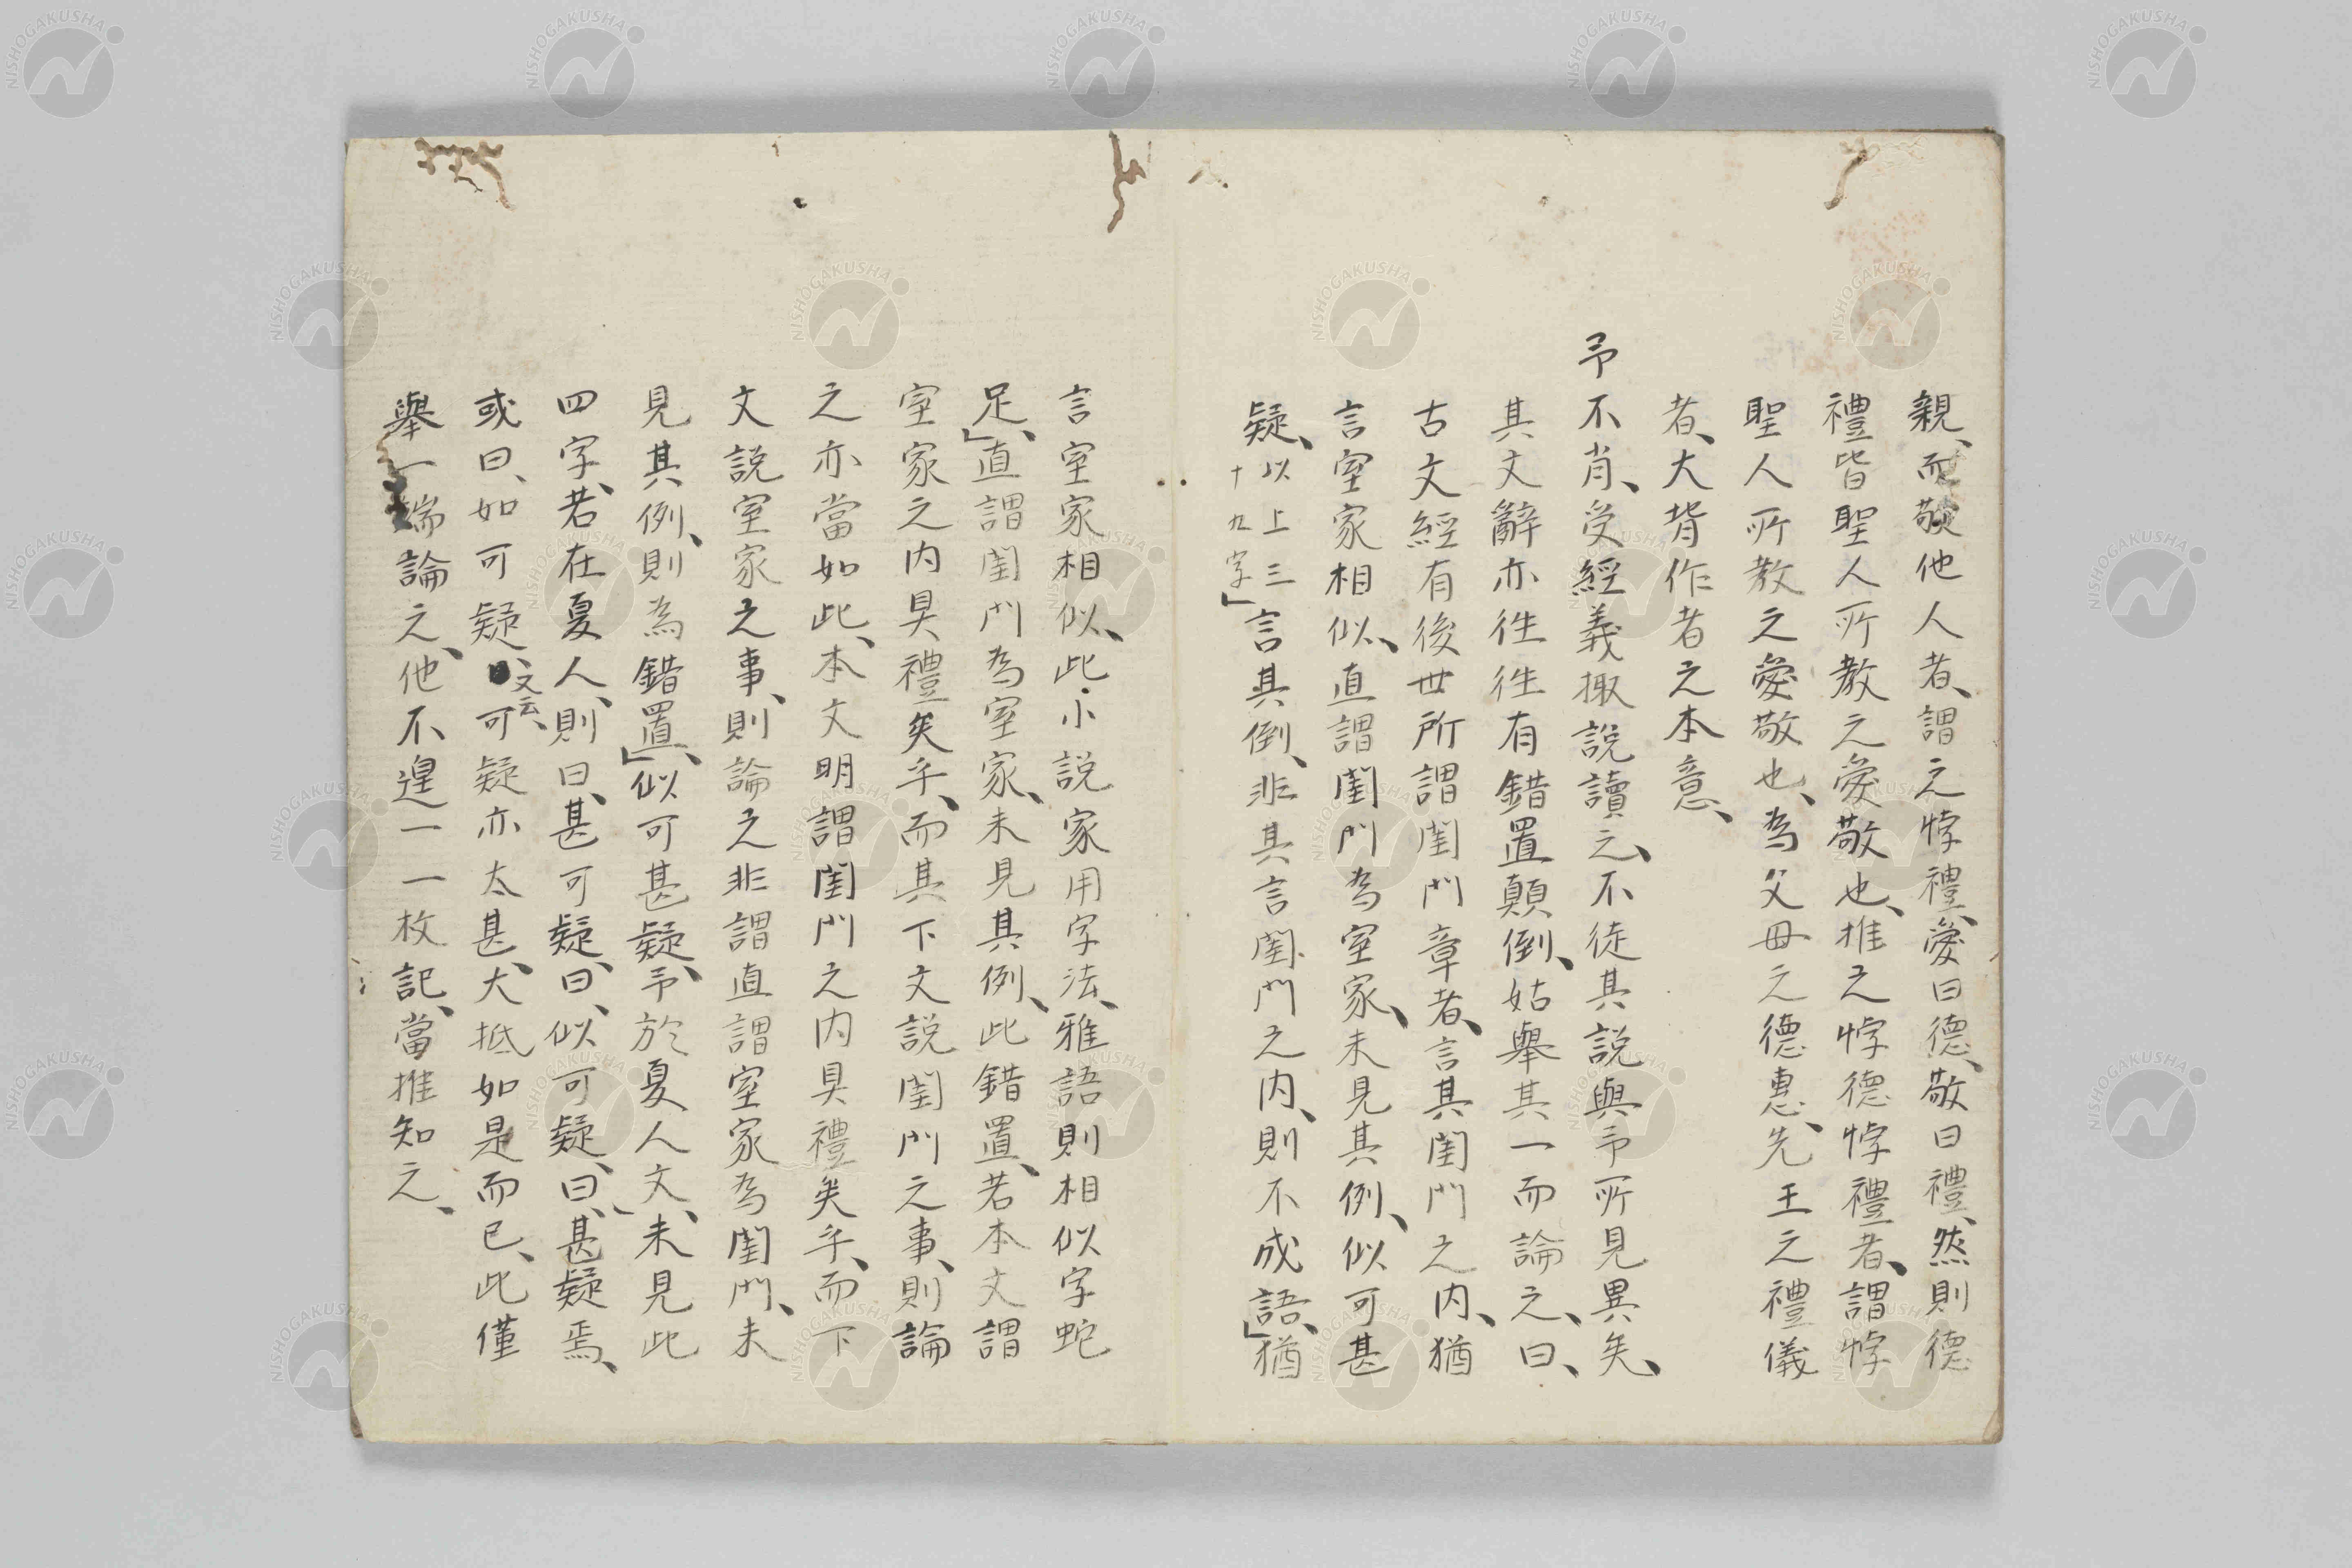 親、而敬他人者、謂之悖禮、愛曰德、敬曰禮、然則德
禮皆聖人所教之愛敬也、推之悖德悖禮者、謂悖
聖人所教之愛敬也、為父母之德惠、先王之禮儀
者、大背作者之本意、
予不肖、受經義掫說讀之、不徒其說與予所見異矣、
其文辭亦往往有錯置顛倒、姑舉其一而論之、曰、
古文經有後世所謂閨門章者、言其閨門之内、猶
言室家相似、直謂閨門為室家、未見其例、似可甚
疑、以上三十九字」言其倒、非其言閨門之内、則不成語、」猶
言室家相似、此小說家用字法、雅語則相似字蛇
足、」直謂閨門為室家、未見其例、此錯置、若本文謂
室家之内具禮矣乎、而其下文說閨門之事、則論
之亦當如此、本文明謂閨門之内具禮矣乎、而下
文説室家之事、則論之非謂直謂室家為閨門、未
見其例、則為錯置、」似可甚疑、予於夏人文、未見此
四字、若在夏人、則曰、甚可疑、曰、似可疑、曰、甚疑焉、
或曰、如可疑、文云、可疑亦太甚、大抵如是而已、此僅
舉一端論之、他不遑一一枚記、當推知之、
NISHOGAKUSHA